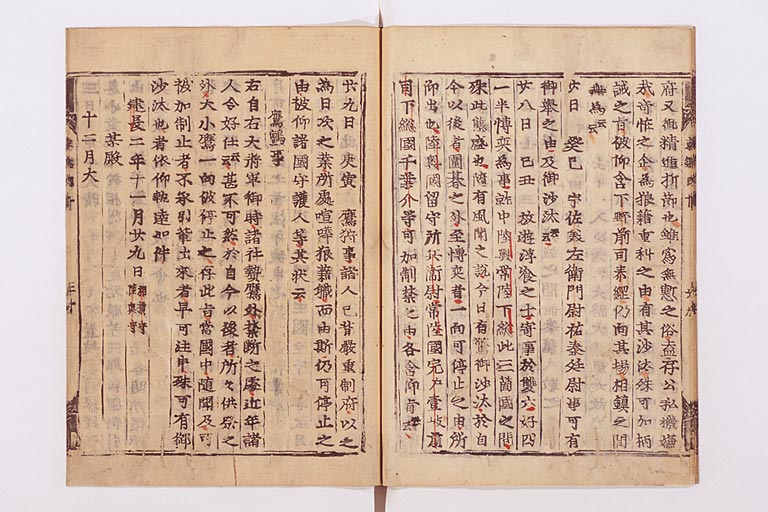 府又無精進折節也雖為無慙之俗盍存公私機嫌
哉奇怪之企為狼藉重科之由有其沙汰殊可加柄
誡之旨被仰含下野前司泰經仍両其場相鎮之間
無為云云
六日 癸巳 宇佐美左衛門尉祐泰廷尉事可有
御擧之由及御沙汰云云
廿八日 己丑 放遊浮食之士寄事於雙六好四
一半博奕為事就中陸奥常陸下総此三箇國之間
殊此態盛也隨有風聞之説今日有嚴御沙汰於自
今以後者圍碁之外至博奕者一向可停止之由所
仰出也陸奥國留守所兵衛尉常陸國宍戸壹岐前
司下総國千葉介等可加制禁之由各含仰旨云云
廿九日 庚寅 鷹狩事諸人已背嚴重制府以之
為日次之業所處喧嘩狼藉職而由斯仍可停止之
由被仰諸國守護人等其状云
鷹鸇事
右自右大將軍御時諸社贄鷹外禁断之處近年諸
人令好仕云云甚不可然於自今以後者所々供祭之
外大小鷹一向被停止之存此旨當國中隨聞及可
被加制止若不承引輩出來者早可注申殊可有御
沙汰也者依仰執達如件
建長二年十一月廿九日 相模守
陸奥守
某殿
十二月大